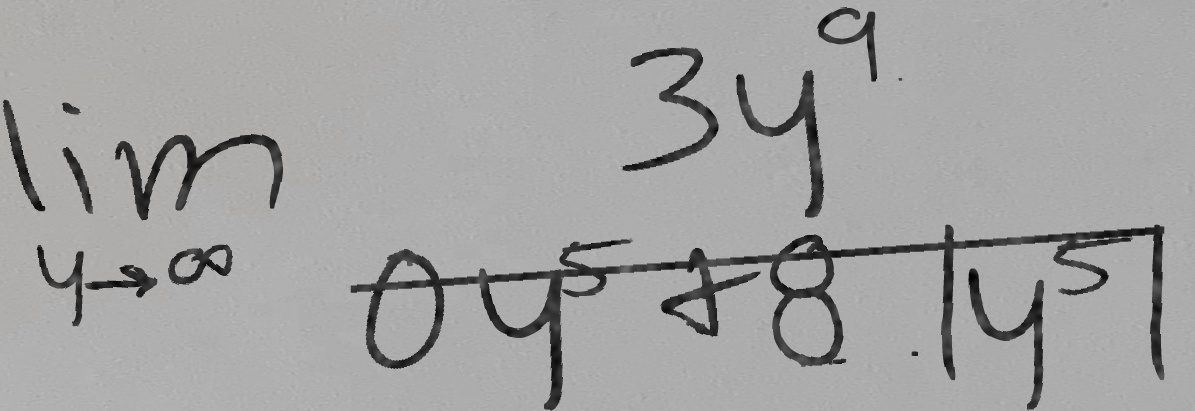 lim y→∞ 3y^9 / (0y^5 + 8|y^5|)